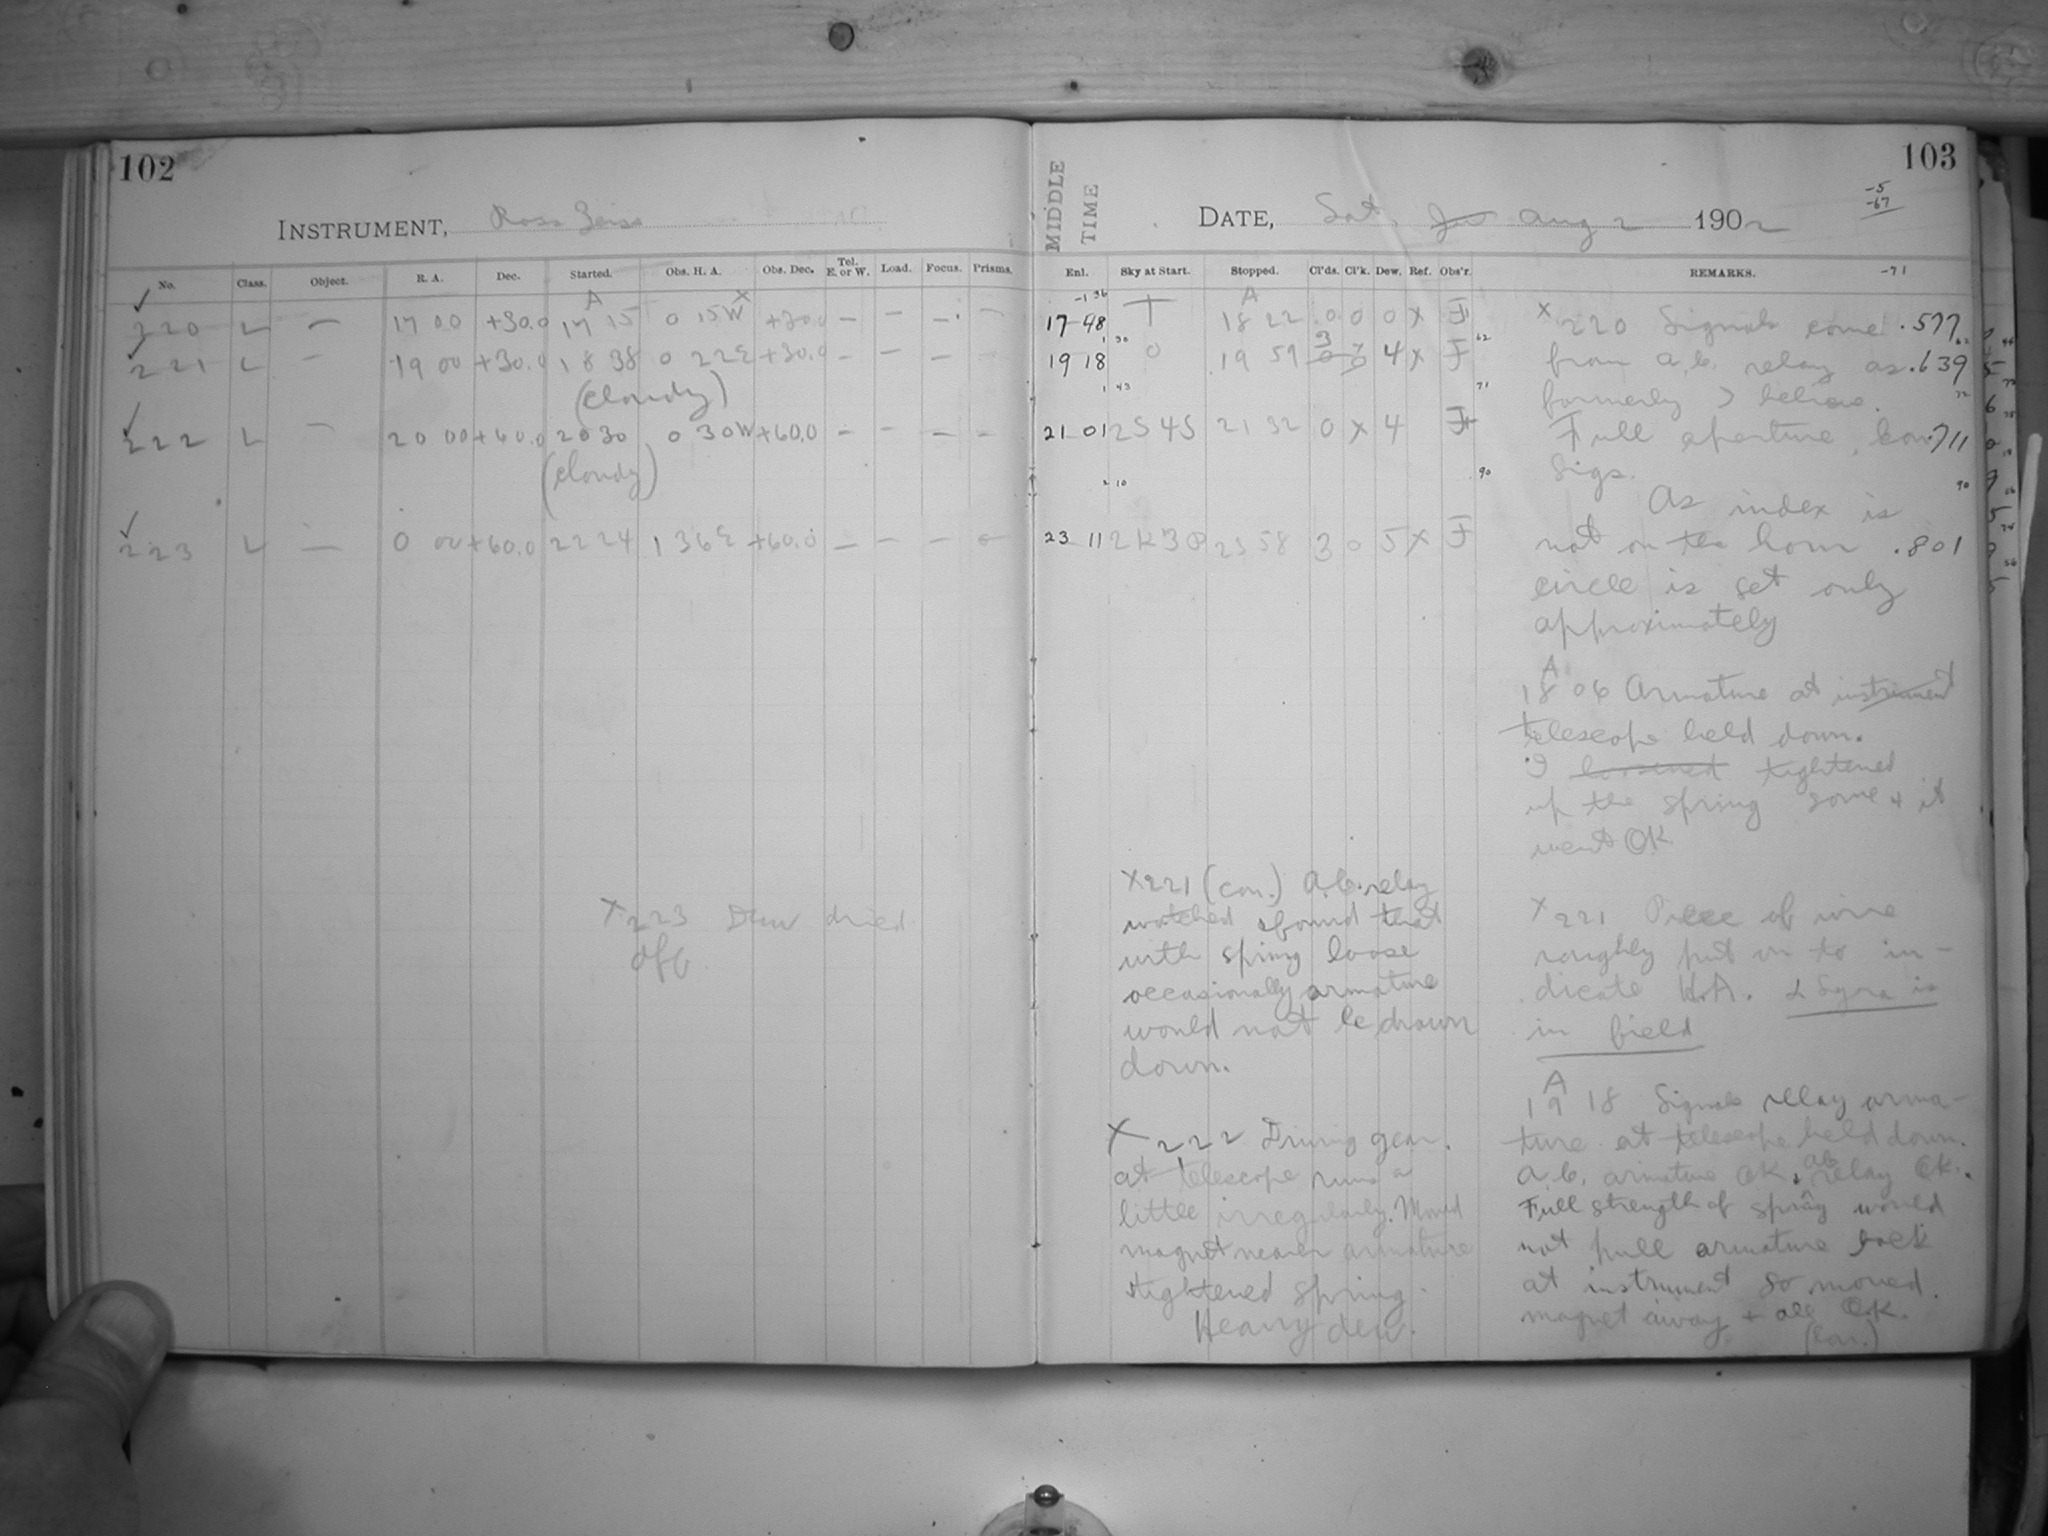 102
INSTRUMENT, Ross Zeiss
No. Class. Object. R. A. Dec. Started. Obs. H. A. Obs. Dec. Tel. E. or W. Load. Focus. Prisms.
220 L — 17 00 +30.0 A 17 15 0 15W X +30.0 — — — —
221 L — 19 00 +30.0 18 38 0 22E +30.0 — — — —
(cloudy)
222 L — 20 00 +60.0 20 30 0 30W +60.0 — — — —
(cloudy)
223 L — 0 00 +60.0 22 24 1 36E +60.0 — — — —
X 223 Dew dried
off.
103
MIDDLE TIME
DATE, Sat. Aug 2 1902
-5
-67
Enl. Sky at Start. Stopped. Cl'ds. Cl'k. Dew. Ref. Obs'r. REMARKS. -71
-1 36
17 48 T A 18 22 0 0 0 X F
1 30
19 18 0 19 59 3 4 X F 62
1 43 71
21 01 2S4S 21 32 0 X 4 F
2 10 90
23 11 2K3P 23 58 3 0 5 X F
X 220 Signals come .577
from a.b. relay as .639
formerly I believe.
Full aperture, .711
sigs.
As index is 90
not on the hour .801
circle is set only
approximately
A
18 06 Armature at instrument
telescope held down.
I loosened tightened
up the spring some + it
went OK
X 221 Piece of wire
roughly put on to in-
dicate H.A. α Lyra is
in field
A
19 18 Signals relay arma-
ture at telescope held down.
a.b. armature OK, ab relay OK.
Full strength of spring would
not pull armature back
at instrument so moved
magnet away + all OK.
(con.)
X221 (con.) a.b. relay
watched & found that
with spring loose
occasionally armature
would not be drawn
down.
X 222 Driving gear
at telescope runs a
little irregularly. Moved
magnet nearer armature
tightened spring.
Heavy dew.